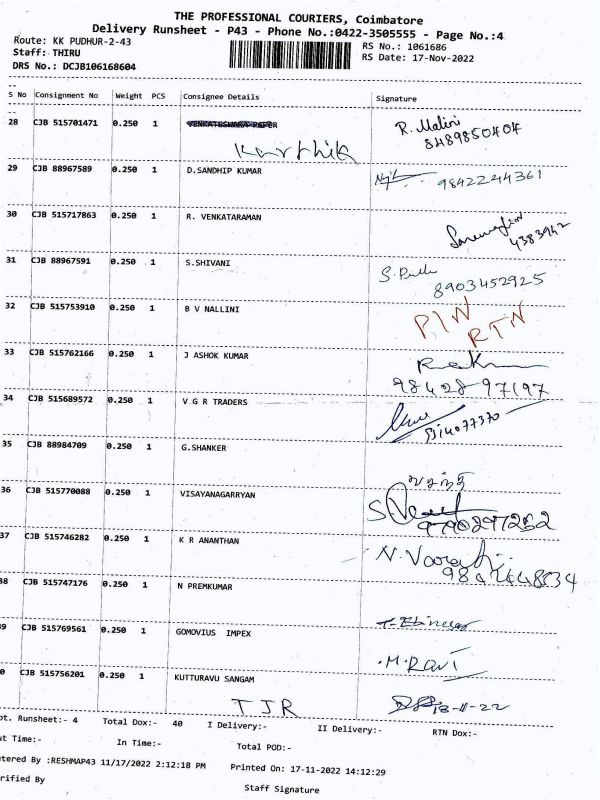 THE PROFESSIONAL COURIERS, Coimbatore
Delivery Runsheet - P43 - Phone No.:0422-3505555 - Page No.:4
Route: KK PUDHUR-2-43
RS No.: 1061686
Staff: THIRU
RS Date: 17-Nov-2022
DRS No.: DCJB106168604
S No Consignment No Weight PCS Consignee Details Signature
28 CJB 515701471 0.250 1 VENKATESWARA PAPER R. Malini
Karthik 8489850404
29 CJB 88967589 0.250 1 D.SANDHIP KUMAR 9842244361
30 CJB 515717863 0.250 1 R. VENKATARAMAN
4383942
31 CJB 88967591 0.250 1 S.SHIVANI
8903452925
32 CJB 515753910 0.250 1 B V NALLINI
RTN
33 CJB 515762166 0.250 1 J ASHOK KUMAR
98428-97197
34 CJB 515689572 0.250 1 V G R TRADERS
35 CJB 88984709 0.250 1 G.SHANKER
36 CJB 515770088 0.250 1 VISAYANAGARRYAN
9790297262
37 CJB 515746282 0.250 1 K R ANANTHAN
38 CJB 515747176 0.250 1 N PREMKUMAR
T-Ebinesar
39 CJB 515769561 0.250 1 GOMOVIUS IMPEX
M. Ravi
0 CJB 515756201 0.250 1 KUTTURAVU SANGAM
TJR 18-11-22
pt. Runsheet:- 4 Total Dox:- 40 I Delivery:- II Delivery:- RTN Dox:-
ut Time:- In Time:- Total POD:-
tered By :RESHMAP43 11/17/2022 2:12:18 PM Printed On: 17-11-2022 14:12:29
rified By Staff Signature